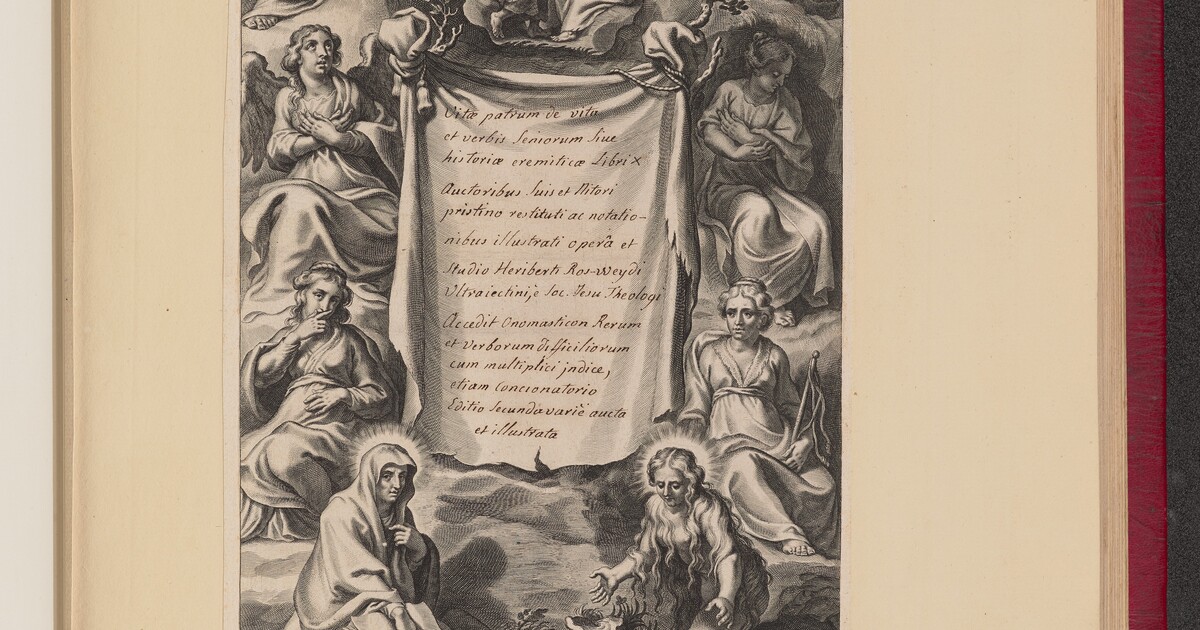 Vitæ patrum de vita
et verbis Seniorum Sive
historiæ eremiticæ Libri X
Auctoribus Suis et Nitori
pristino restituti ac notatio-
nibus illustrati operâ et
Studio Heriberti Ros-weydi
Ultraiectinij e Soc. Jesu Theologi
Accedit Onomasticon Rerum
et Verborum difficiliorum
cum multiplici jndice,
etiam Concionatorio
Editio Secunda variè aucta
et illustrata